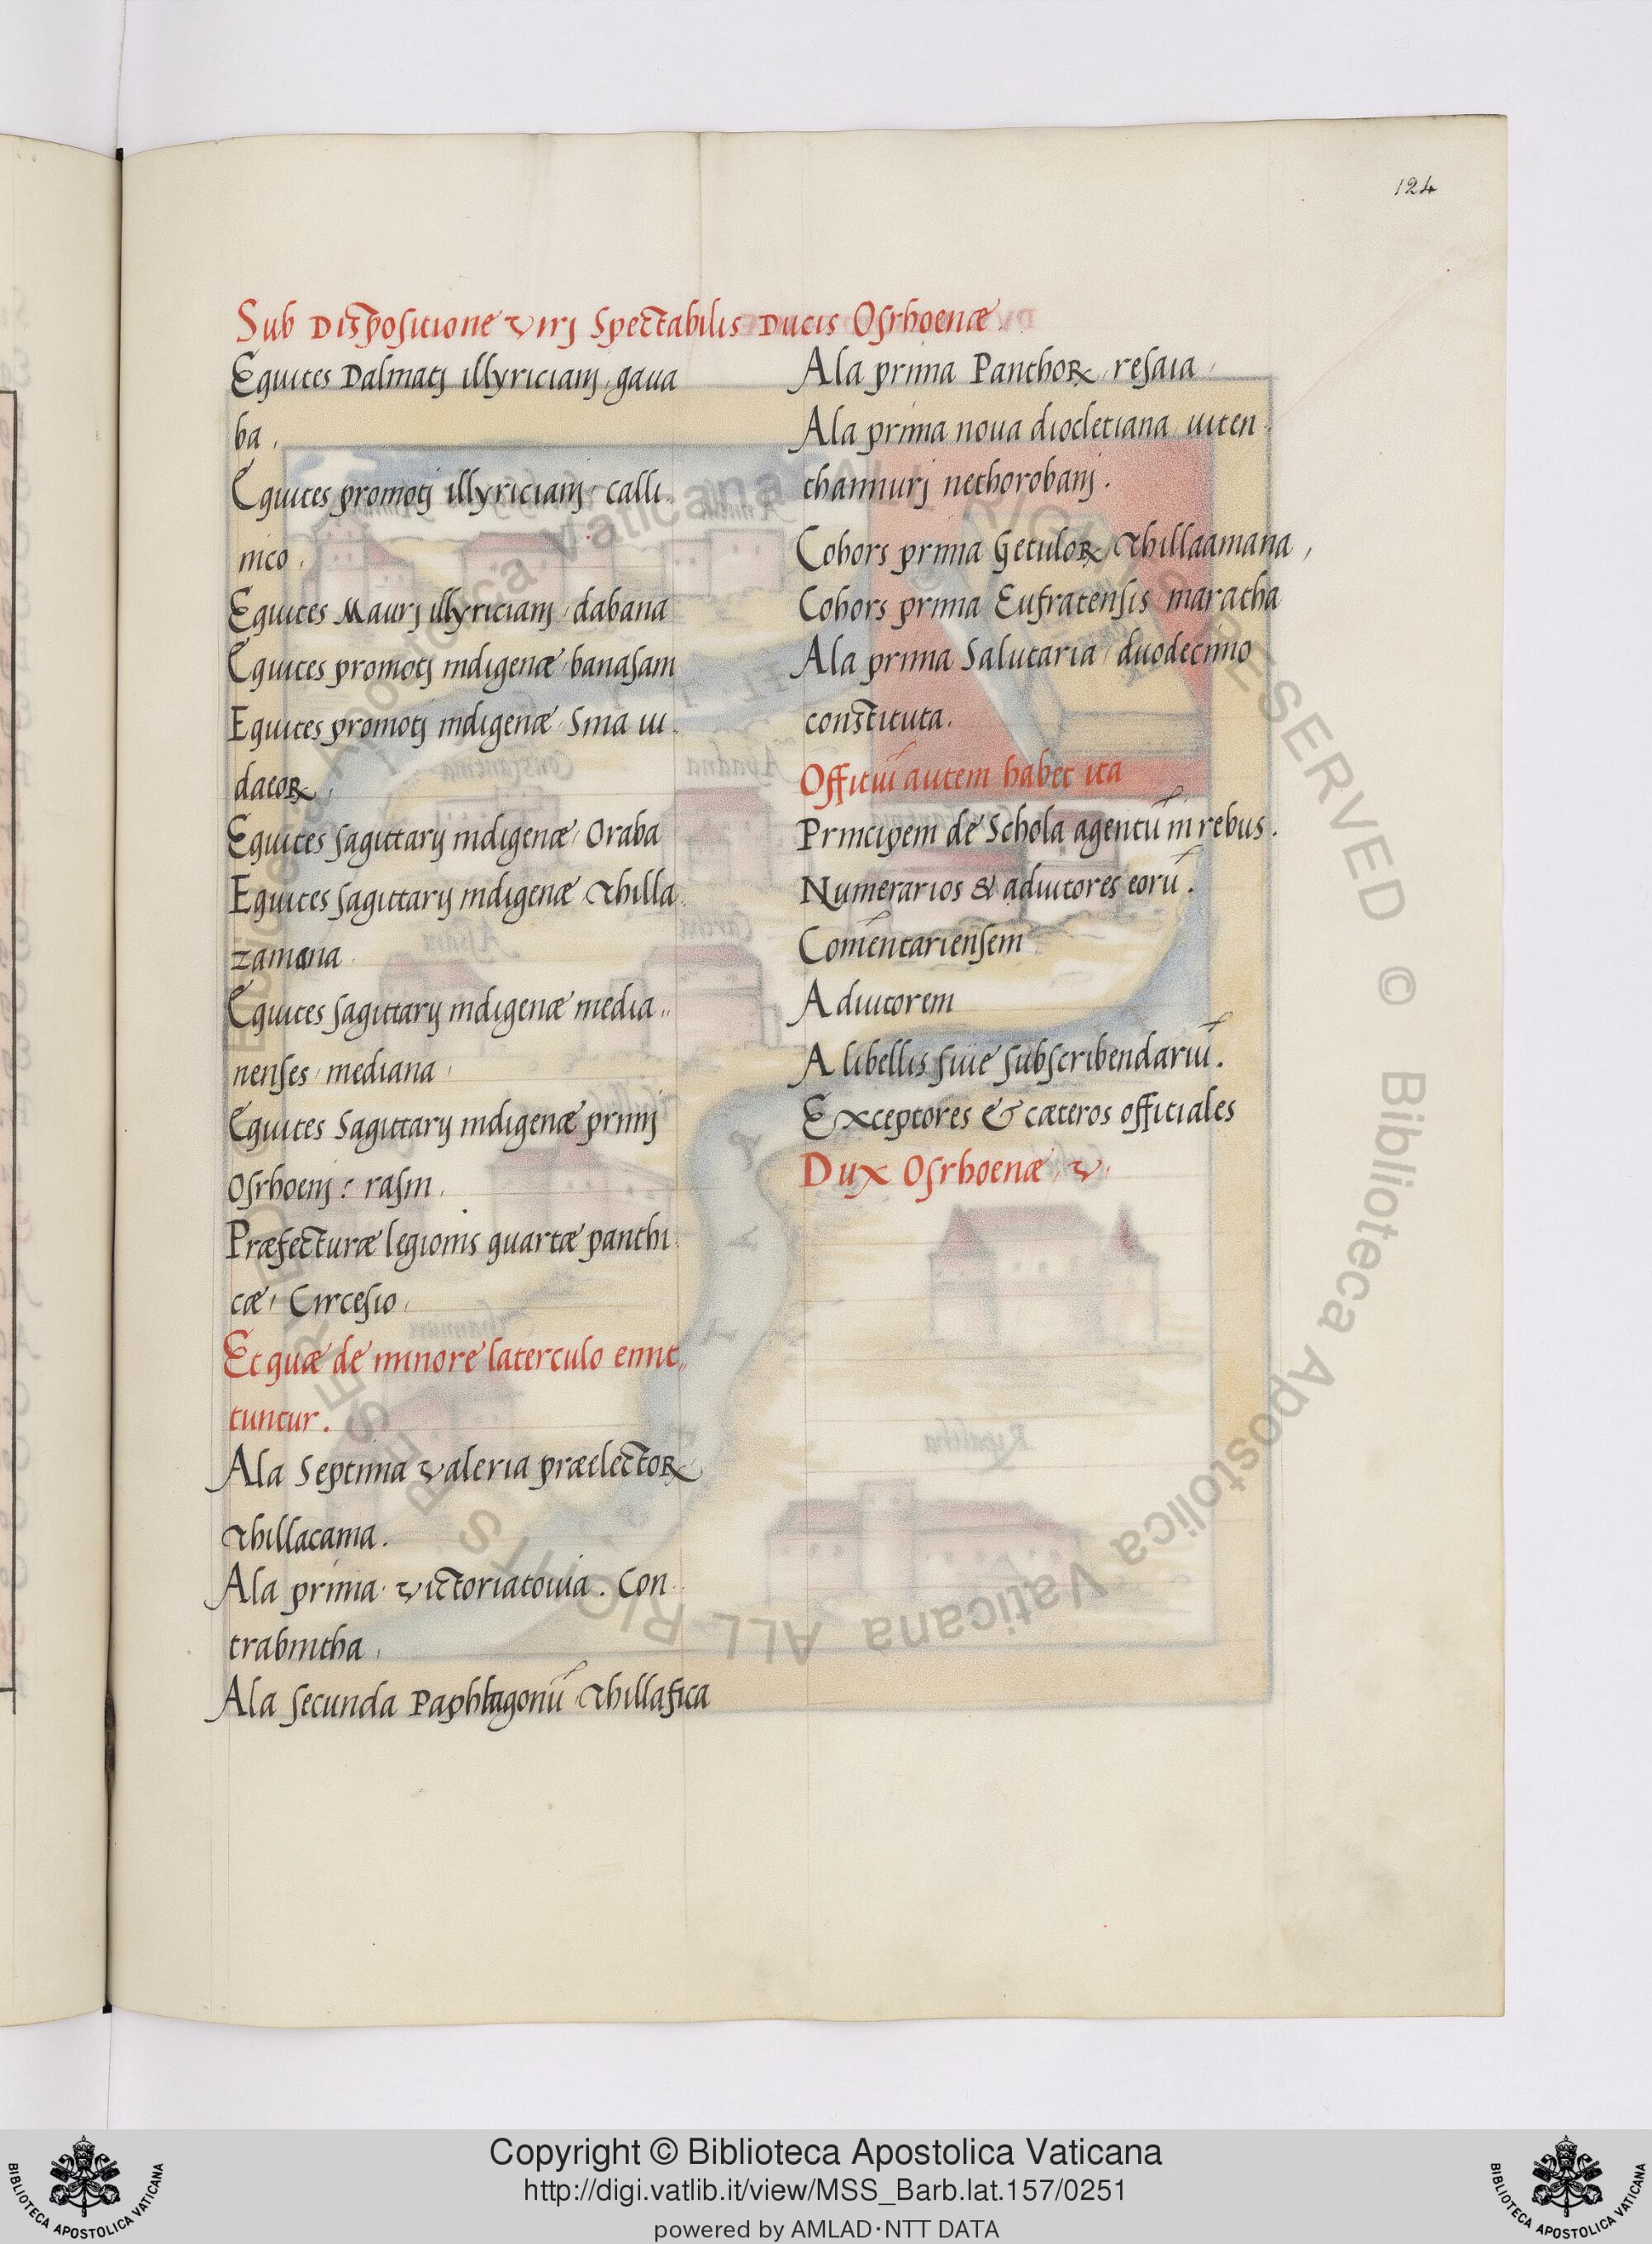 124
Sub Dispositione virj Spectabilis Ducis Osrhoenæ.
Equites Dalmatj illyricianj, gaua
ba.
Equites promotj illyricianj, calli
nico.
Equites Maurj illyricianj, dabana
Equites promotj indigenæ, banasam
Equites promotj indigenæ, Sina iu
datoꝝ.
Equites sagittarij indigenæ, Oraba
Equites sagittarij indigenæ Thilla
zamana.
Equites sagittarij indigenæ media„
nenses, mediana,
Equites Sagittarij indigenæ primj
Osrhoenj: rasin.
Præfecturæ legionis quartæ panthi
cæ, Circesio.
Et quæ de minore laterculo emit„
tuntur.
Ala Septima valeria prælectoꝝ
Thillacama.
Ala prima. victoriatouia. Con
trabintha,
Ala secunda Paphlagonū Thillafica
Ala prima Panthoꝝ, resaia,
Ala prima noua diocletiana, uiten
thannurj nethorobanj.
Cohors prima Getuloꝝ, Thillaamana,
Cohors prima Eufratensis maratha
Ala prima Salutaria, duodecimo
constituta.
Offitiū autem habet ita
Principem de Schola agentū in rebus.
Numerarios & adiutores eorū.
Com̄entariensem
Adiutorem
A libellis siue subscribendariū.
Exceptores & cæteros offitiales
Dux Osrhoenæ, v.
Copyright © Biblioteca Apostolica Vaticana
http://digi.vatlib.it/view/MSS_Barb.lat.157/0251
powered by AMLAD·NTT DATA
BIBLIOTECA APOSTOLICA VATICANA
BIBLIOTECA APOSTOLICA VATICANA